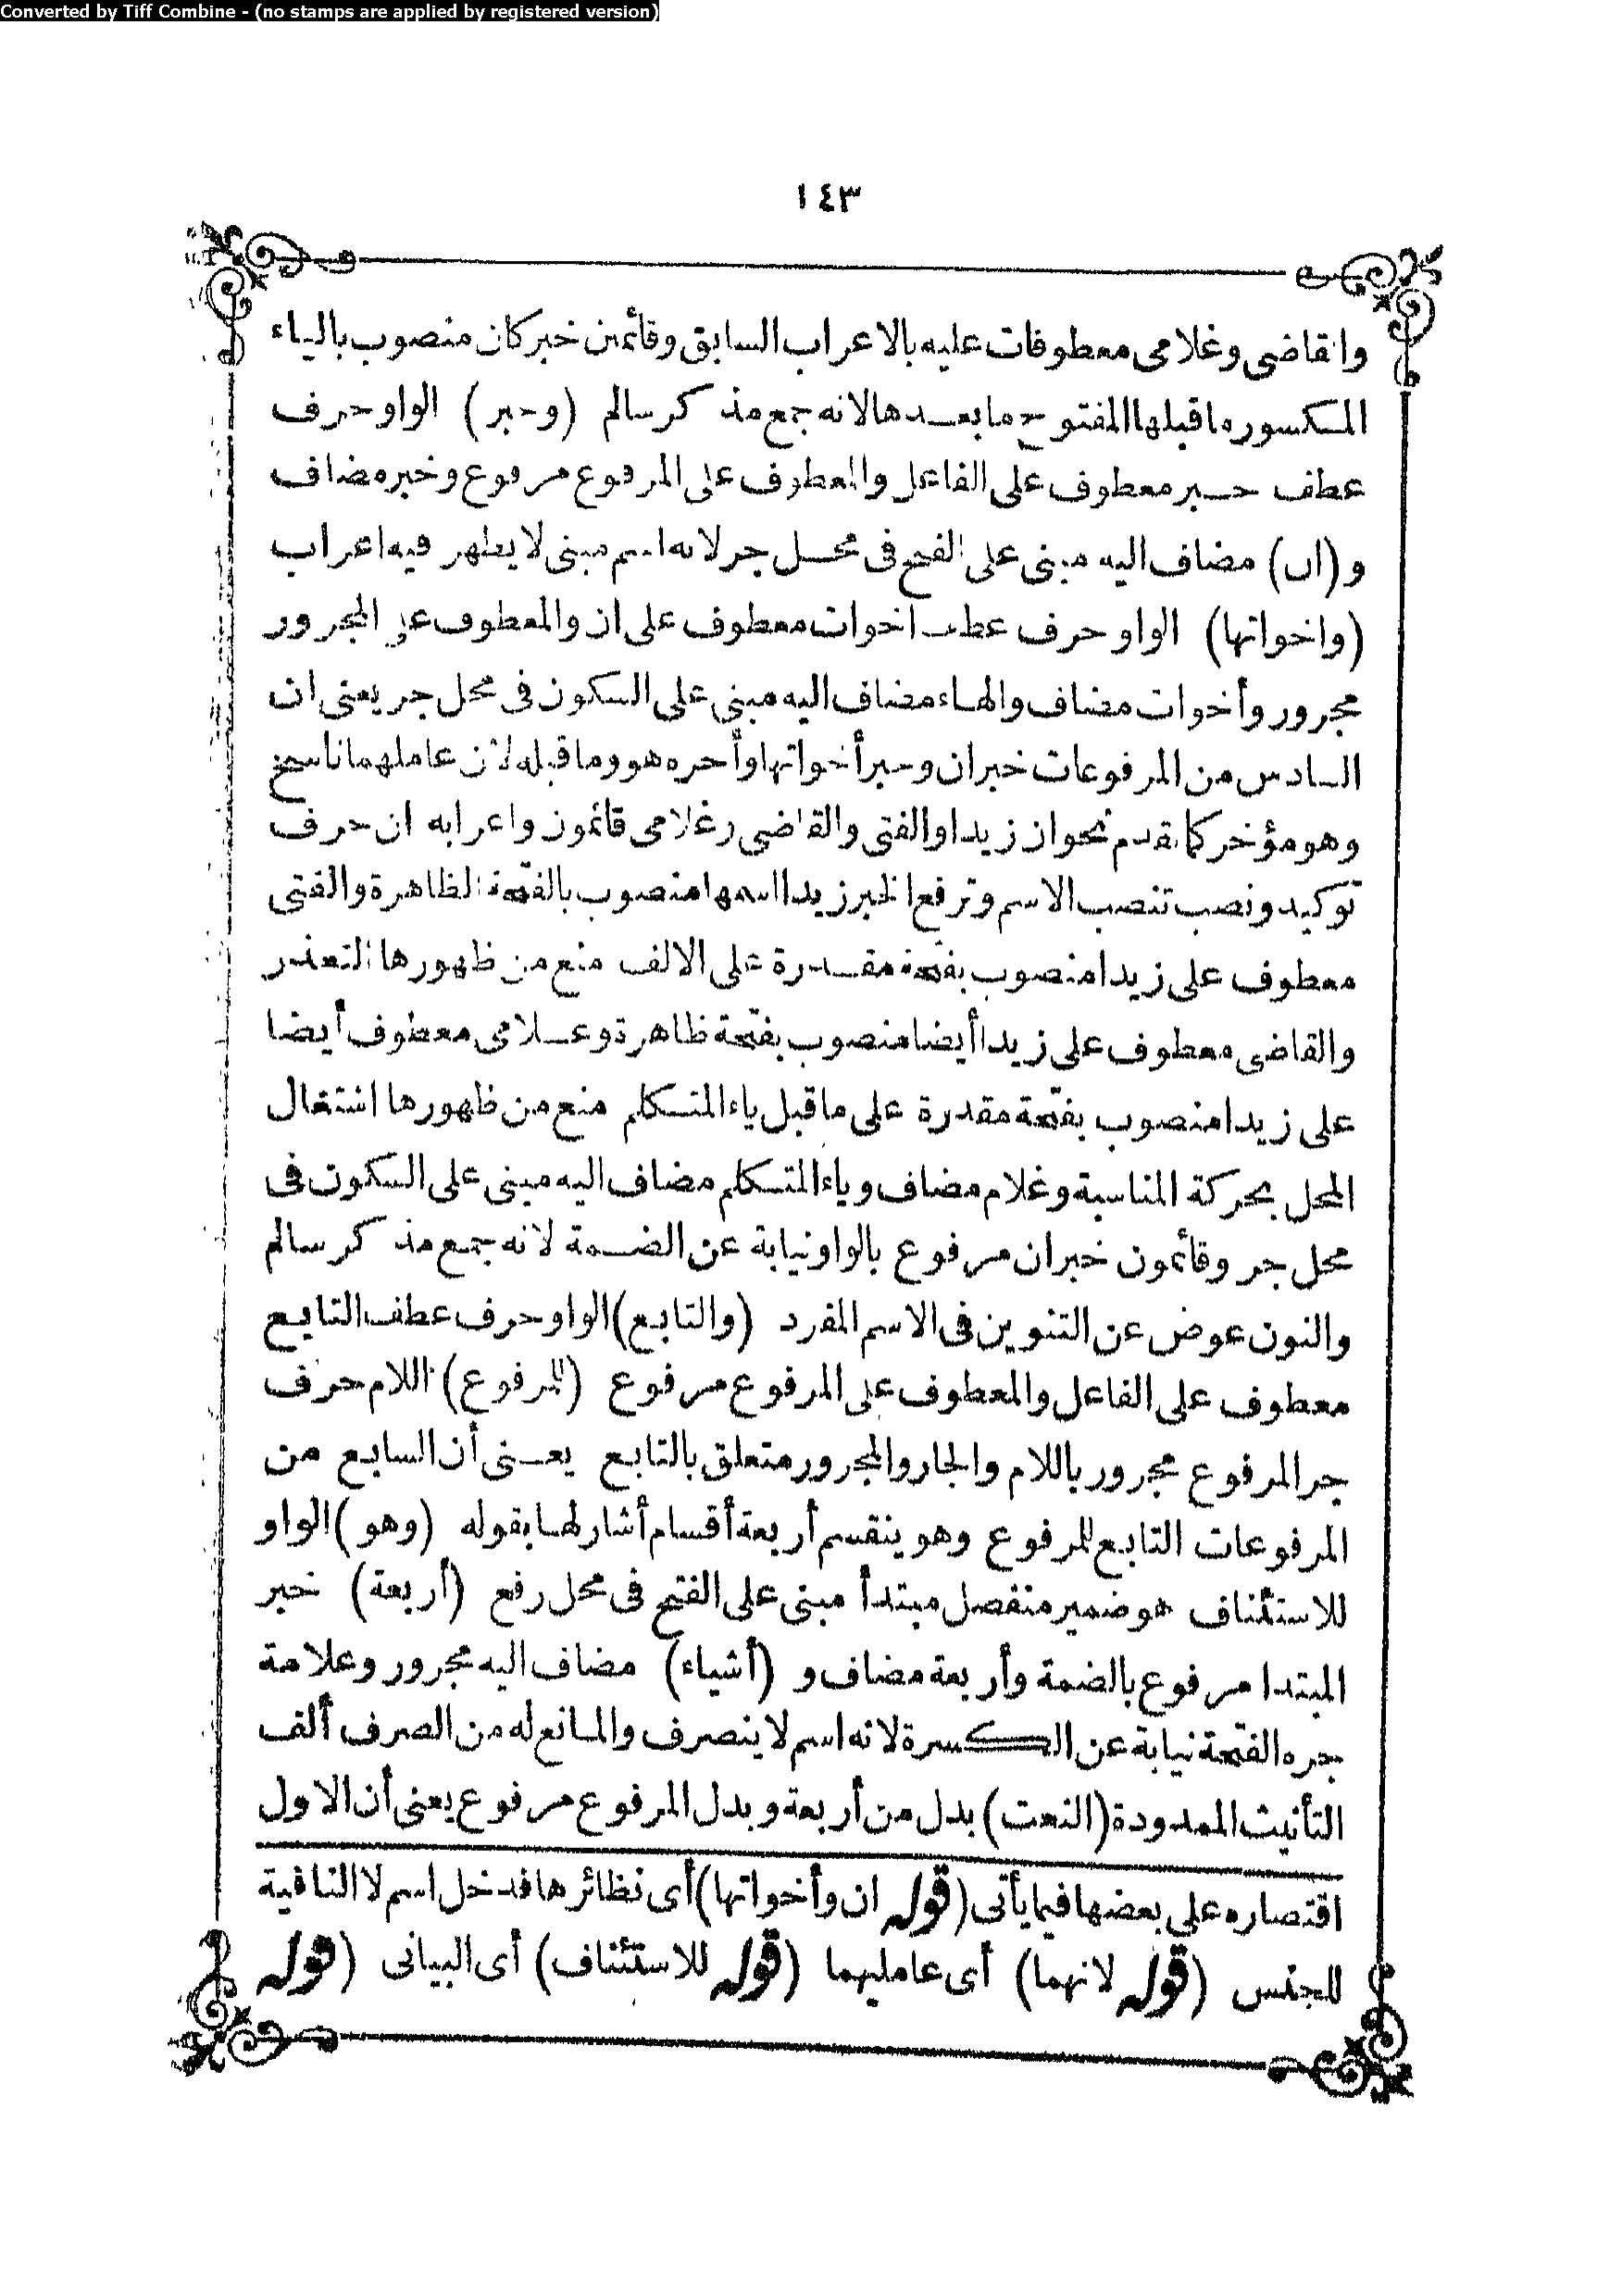 Converted by Tiff Combine - (no stamps are applied by registered version)
١٤٣
والقاضى وغلامى معطوفات عليه بالاعراب السابق وقائمين خبر كان منصوب بالياء
المكسور ما قبلها المفتوح ما بعدها لانه جمع مذكر سالم (وخبر) الواو حرف
عطف خبر معطوف على الفاعل والمعطوف على المرفوع مرفوع وخبر مضاف
و (ان) مضاف اليه مبنى على الفتح فى محل جر لانه اسم مبنى لا يظهر فيه اعراب
(واخواتها) الواو حرف عطف اخوات معطوف على ان والمعطوف على المجرور
مجرور وأخوات مضاف والهاء مضاف اليه مبنى على السكون فى محل جر يعنى ان
السادس من المرفوعات خبر ان وخبر أخواتها وأخره هو وما قبله لان عاملهما ناسخ
وهو مؤخر كما تقدم نحو ان زيدا والفتى والقاضى وغلامى قائمون واعرابه ان حرف
توكيد ونصب تنصب الاسم وترفع الخبر زيدا اسمها منصوب بالفتحة الظاهرة والفتى
معطوف على زيدا منصوب بفتحة مقدرة على الالف منع من ظهورها التعذر
والقاضى معطوف على زيدا أيضا منصوب بفتحة ظاهرة وغلامى معطوف أيضا
على زيدا منصوب بفتحة مقدرة على ما قبل ياء المتكلم منع من ظهورها اشتغال
المحل بحركة المناسبة وغلام مضاف وياء المتكلم مضاف اليه مبنى على السكون فى
محل جر وقائمون خبر ان مرفوع بالواو نيابة عن الضمة لانه جمع مذكر سالم
والنون عوض عن التنوين فى الاسم المفرد (والتابع) الواو حرف عطف التابع
معطوف على الفاعل والمعطوف على المرفوع مرفوع (للمرفوع) اللام حرف
جر المرفوع مجرور باللام والجار والمجرور متعلق بالتابع يعنى أن السابع من
المرفوعات التابع للمرفوع وهو ينقسم أربعة أقسام أشار لها بقوله (وهو) الواو
للاستئناف هو ضمير منفصل مبتدأ مبنى على الفتح فى محل رفع (أربعة) خبر
المبتدا مرفوع بالضمة وأربعة مضاف و (أشياء) مضاف اليه مجرور وعلامة
جره الفتحة نيابة عن الكسرة لانه اسم لا ينصرف والمانع له من الصرف ألف
التأنيث الممدودة (النعت) بدل من أربعة وبدل المرفوع مرفوع يعنى أن الاول
اقتصاره على بعضها فيما يأتى (قوله ان وأخواتها) أى نظائرها فدخل اسم لا النافية
للجنس (قوله لانهما) أى عامليهما (قوله للاستئناف) أى البيانى (قوله